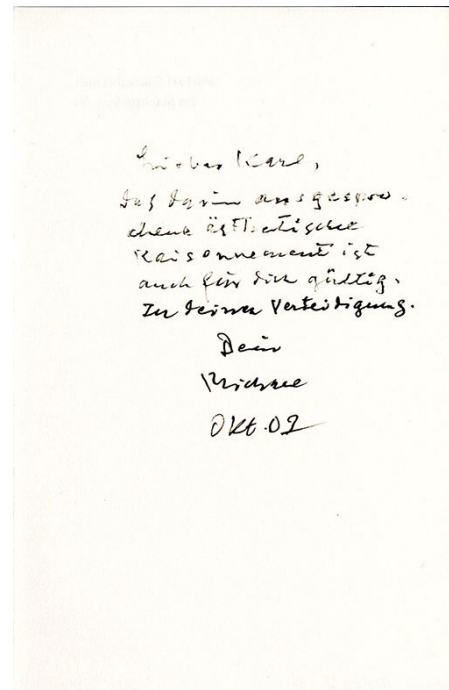 Lieber Karl,
das darin ausgespro-
chene ästhetische
Raisonnement ist
auch für dich gültig.
Zu deiner Verteidigung.
Dein
Michael
Okt. 02